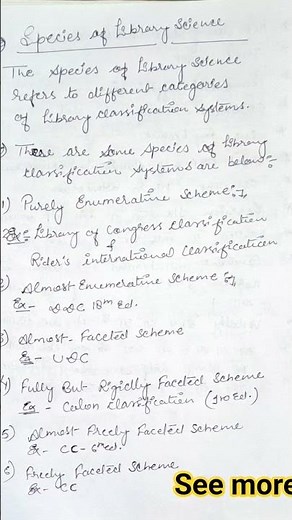 Species of Library Science
The species of Library Science
refers to different categories
of Library classification systems.
There are some species of Library
classification systems are below:-
1) Purely Enumerative Scheme:-
Ex- Library of Congress classification
Rider's international classification
2) Almost Enumerative Scheme:-
Ex- DDC 18th Ed.
3) Almost-Faceted Scheme
Ex- UDC
4) Fully But Rigidly Faceted Scheme
Ex- Colon classification (Ed.)
5) Almost Freely Faceted Scheme
Ex- CC-6th ed.
6) Freely Faceted Scheme
Ex- CC
See more